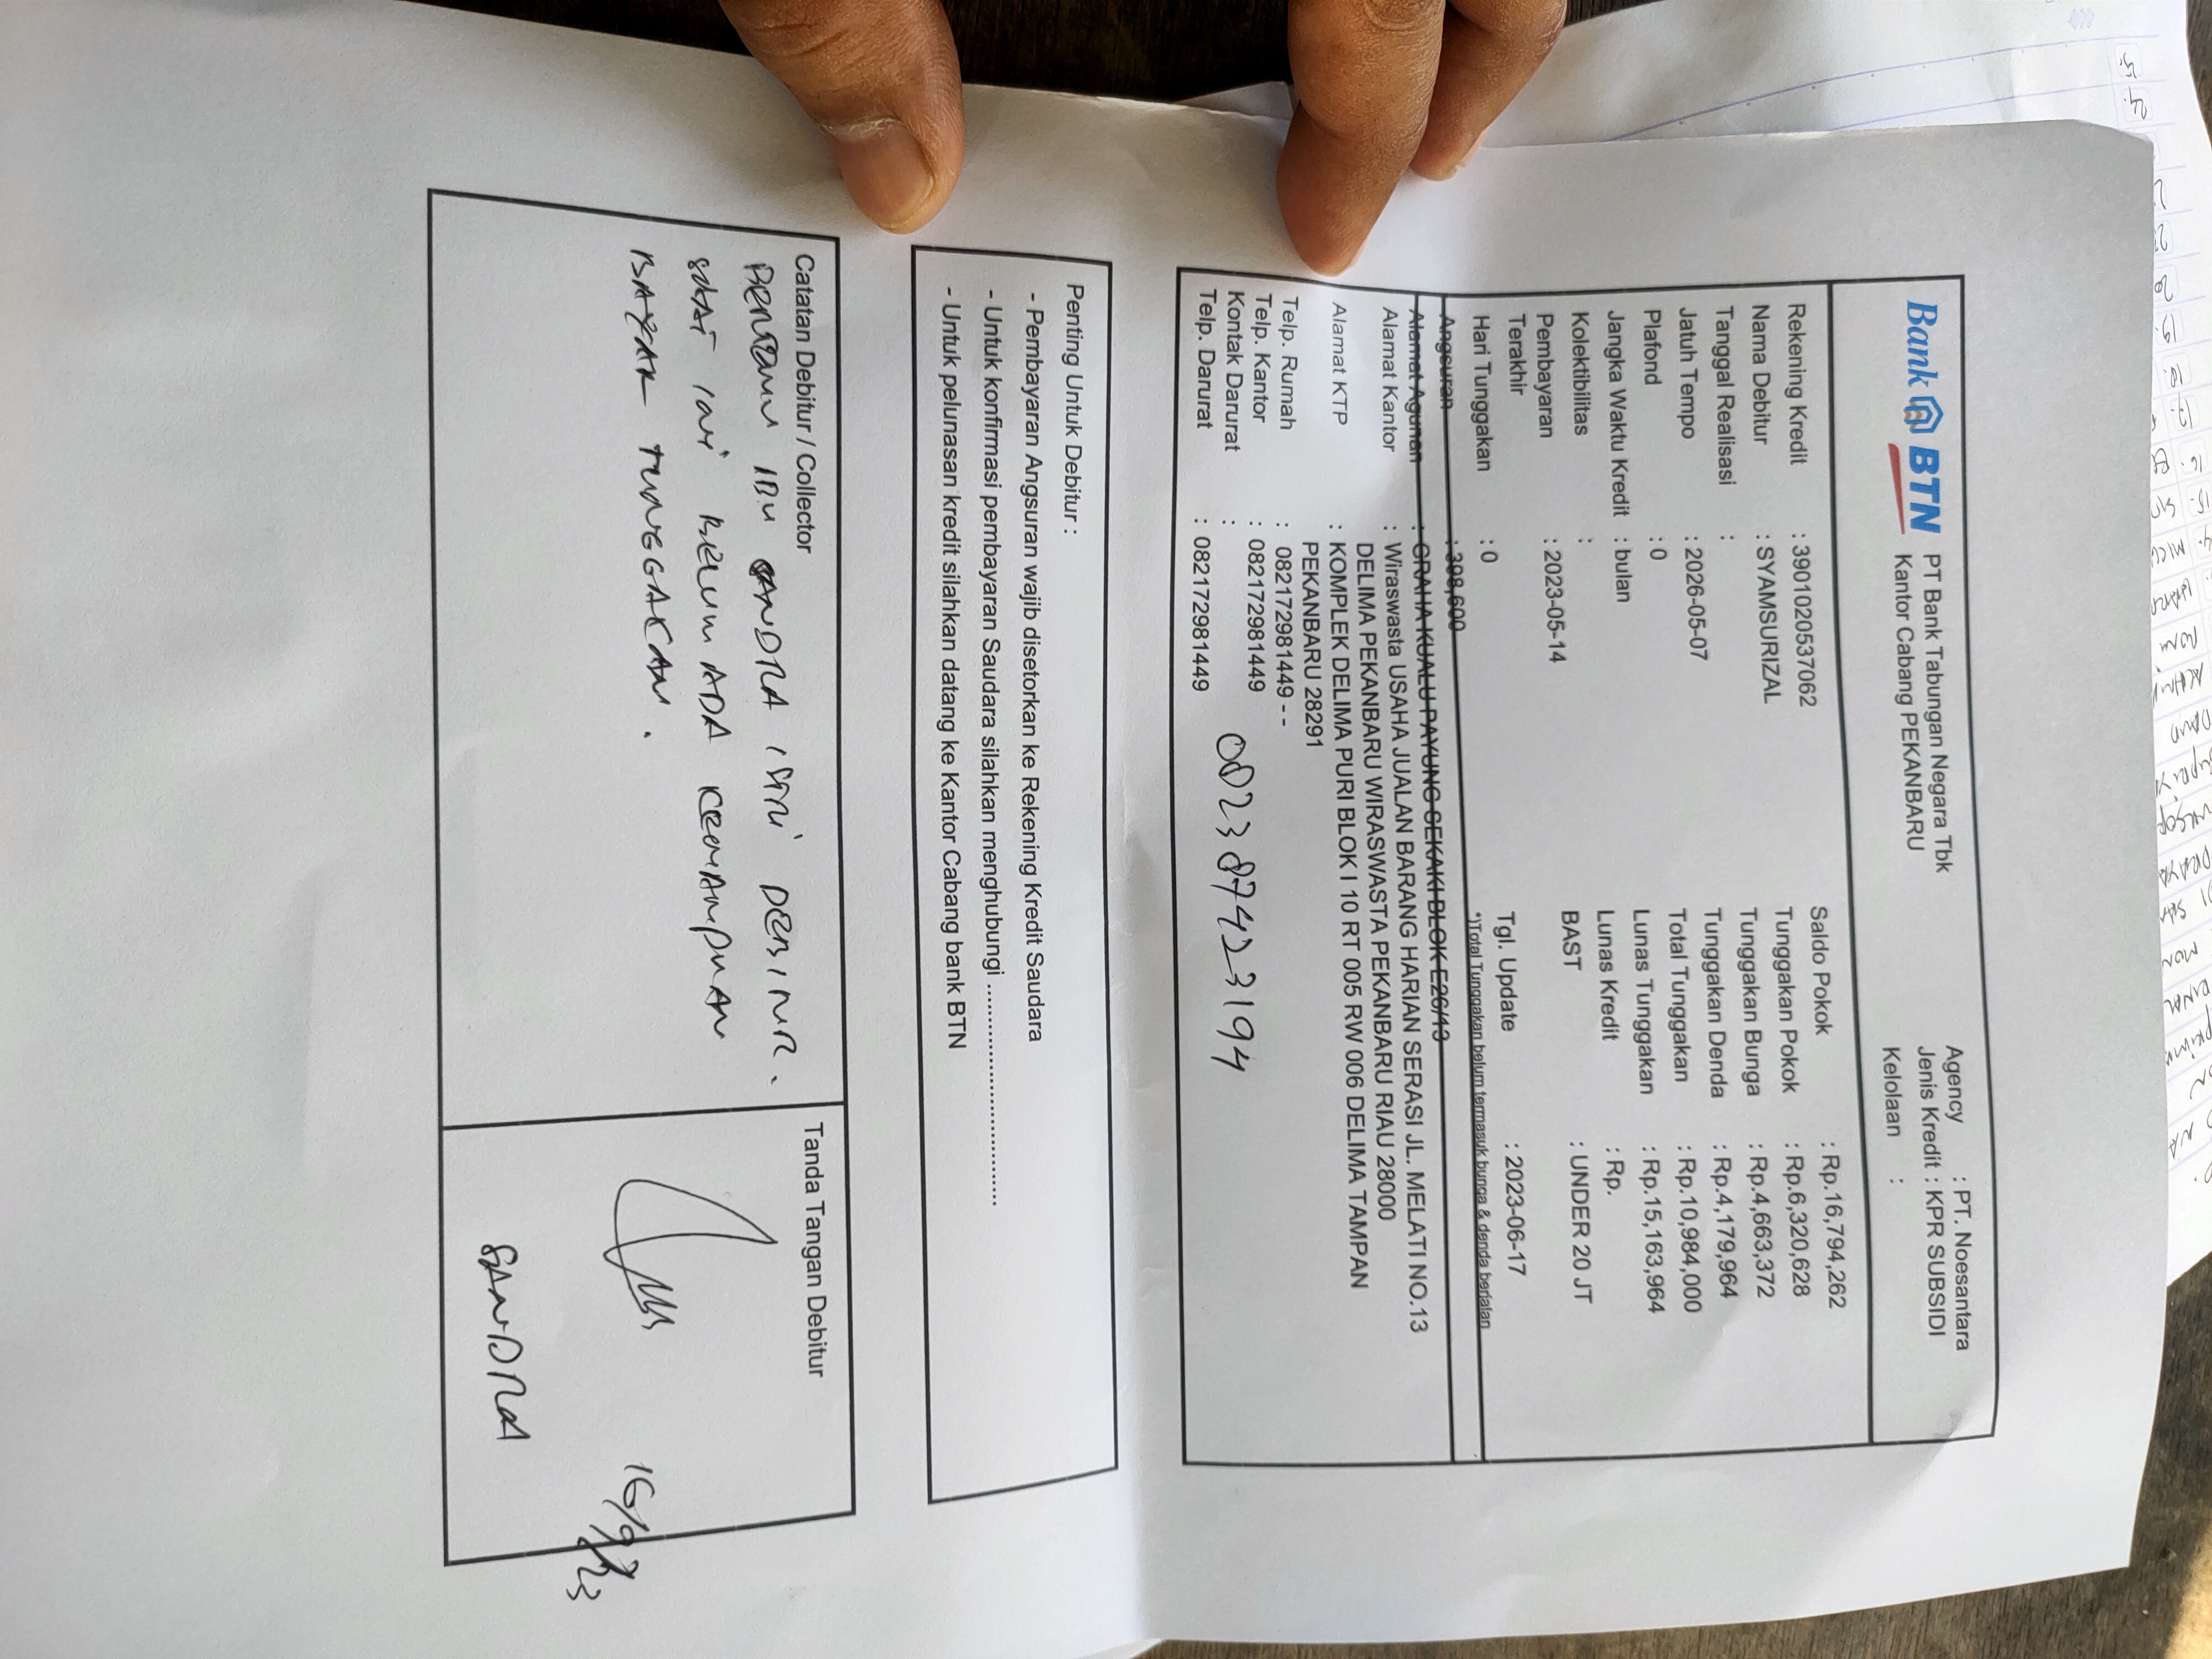 Bank BTN
PT Bank Tabungan Negara Tbk
Kantor Cabang PEKANBARU
Agency : PT. Noesantara
Jenis Kredit : KPR SUBSIDI
Kelolaan :
Rekening Kredit : 3901020537062
Nama Debitur : SYAMSURIZAL
Tanggal Realisasi :
Jatuh Tempo : 2026-05-07
Plafond : 0
Jangka Waktu Kredit : bulan
Kolektibilitas :
Pembayaran : 2023-05-14
Terakhir
Hari Tunggakan : 0
Angsuran : 398,600
Saldo Pokok : Rp.16,794,262
Tunggakan Pokok : Rp.6,320,628
Tunggakan Bunga : Rp.4,663,372
Tunggakan Denda : Rp.4,179,964
Total Tunggakan : Rp.10,984,000
Lunas Tunggakan : Rp.15,163,964
Lunas Kredit : Rp.
BAST : UNDER 20 JT
Tgl. Update : 2023-06-17
*)Total Tunggakan belum termasuk bunga & denda berjalan
Alamat Agunan : GRAHA KUALU PAYUNG SEKAKI BLOK E26/13
Alamat Kantor : Wiraswasta USAHA JUALAN BARANG HARIAN SERASI JL. MELATI NO.13
DELIMA PEKANBARU WIRASWASTA PEKANBARU RIAU 28000
Alamat KTP : KOMPLEK DELIMA PURI BLOK I 10 RT 005 RW 006 DELIMA TAMPAN
PEKANBARU 28291
Telp. Rumah : 082172981449 - -
Telp. Kantor : 082172981449
Kontak Darurat :
Telp. Darurat : 082172981449
082387423194
Penting Untuk Debitur :
- Pembayaran Angsuran wajib disetorkan ke Rekening Kredit Saudara
- Untuk konfirmasi pembayaran Saudara silahkan menghubungi ................................
- Untuk pelunasan kredit silahkan datang ke Kantor Cabang bank BTN
Catatan Debitur / Collector
BERTEMU IBU SANDRA ISTRI DEBITUR.
SAAT INI BELUM ADA KEMAMPUAN
BAYAR TUNGGAKAN.
Tanda Tangan Debitur
16/9/23
SANDRA